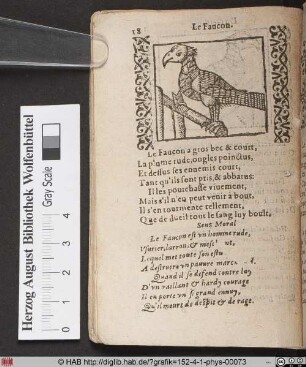 18
Le Faucon.
Le Faucon a gros bec & court,
La plume rude, ongles poinctus,
Et dessus ses ennemis court,
Tant qu'ils sont pris, & abbatus:
Il les pourchasse viuement,
Mais s'il n'en peut venir à bout,
Il s'en tourmente tellement,
Que de dueil tout le sang luy boult.
Sens Moral
Le Faucon est vn homme rude,
Vsurier, larron, &
Lequel met toute son estu
A destruire vn pauure marc
Quand il se defend contre luy
D'vn vaillant & hardy courage
Il en porte vn si grand ennuy,
Qu'il meurt de despit & de rage.
Herzog August Bibliothek Wolfenbüttel
Gray Scale
0
1
2
3
4
© HAB http://diglib.hab.de/?grafik=152-4-1-phys-00073